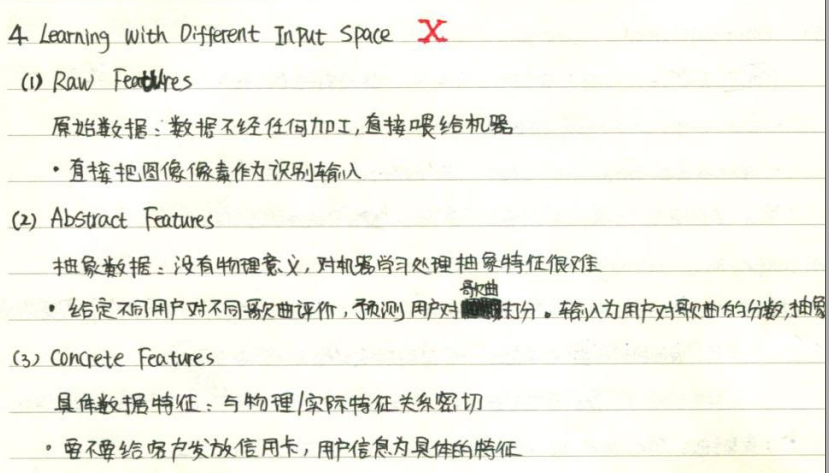 4 Learning with Different Input Space X
(1) Raw Features
原始数据：数据不经任何加工，直接喂给机器
· 直接把图像像素作为识别输入
(2) Abstract Features
抽象数据：没有物理意义，对机器学习处理抽象特征很难
· 给定不同用户对不同歌曲评价，预测用户对歌曲打分。输入为用户对歌曲的分数，抽象
(3) Concrete Features
具体数据特征：与物理/实际特征关系密切
· 要不要给客户发放信用卡，用户信息为具体的特征